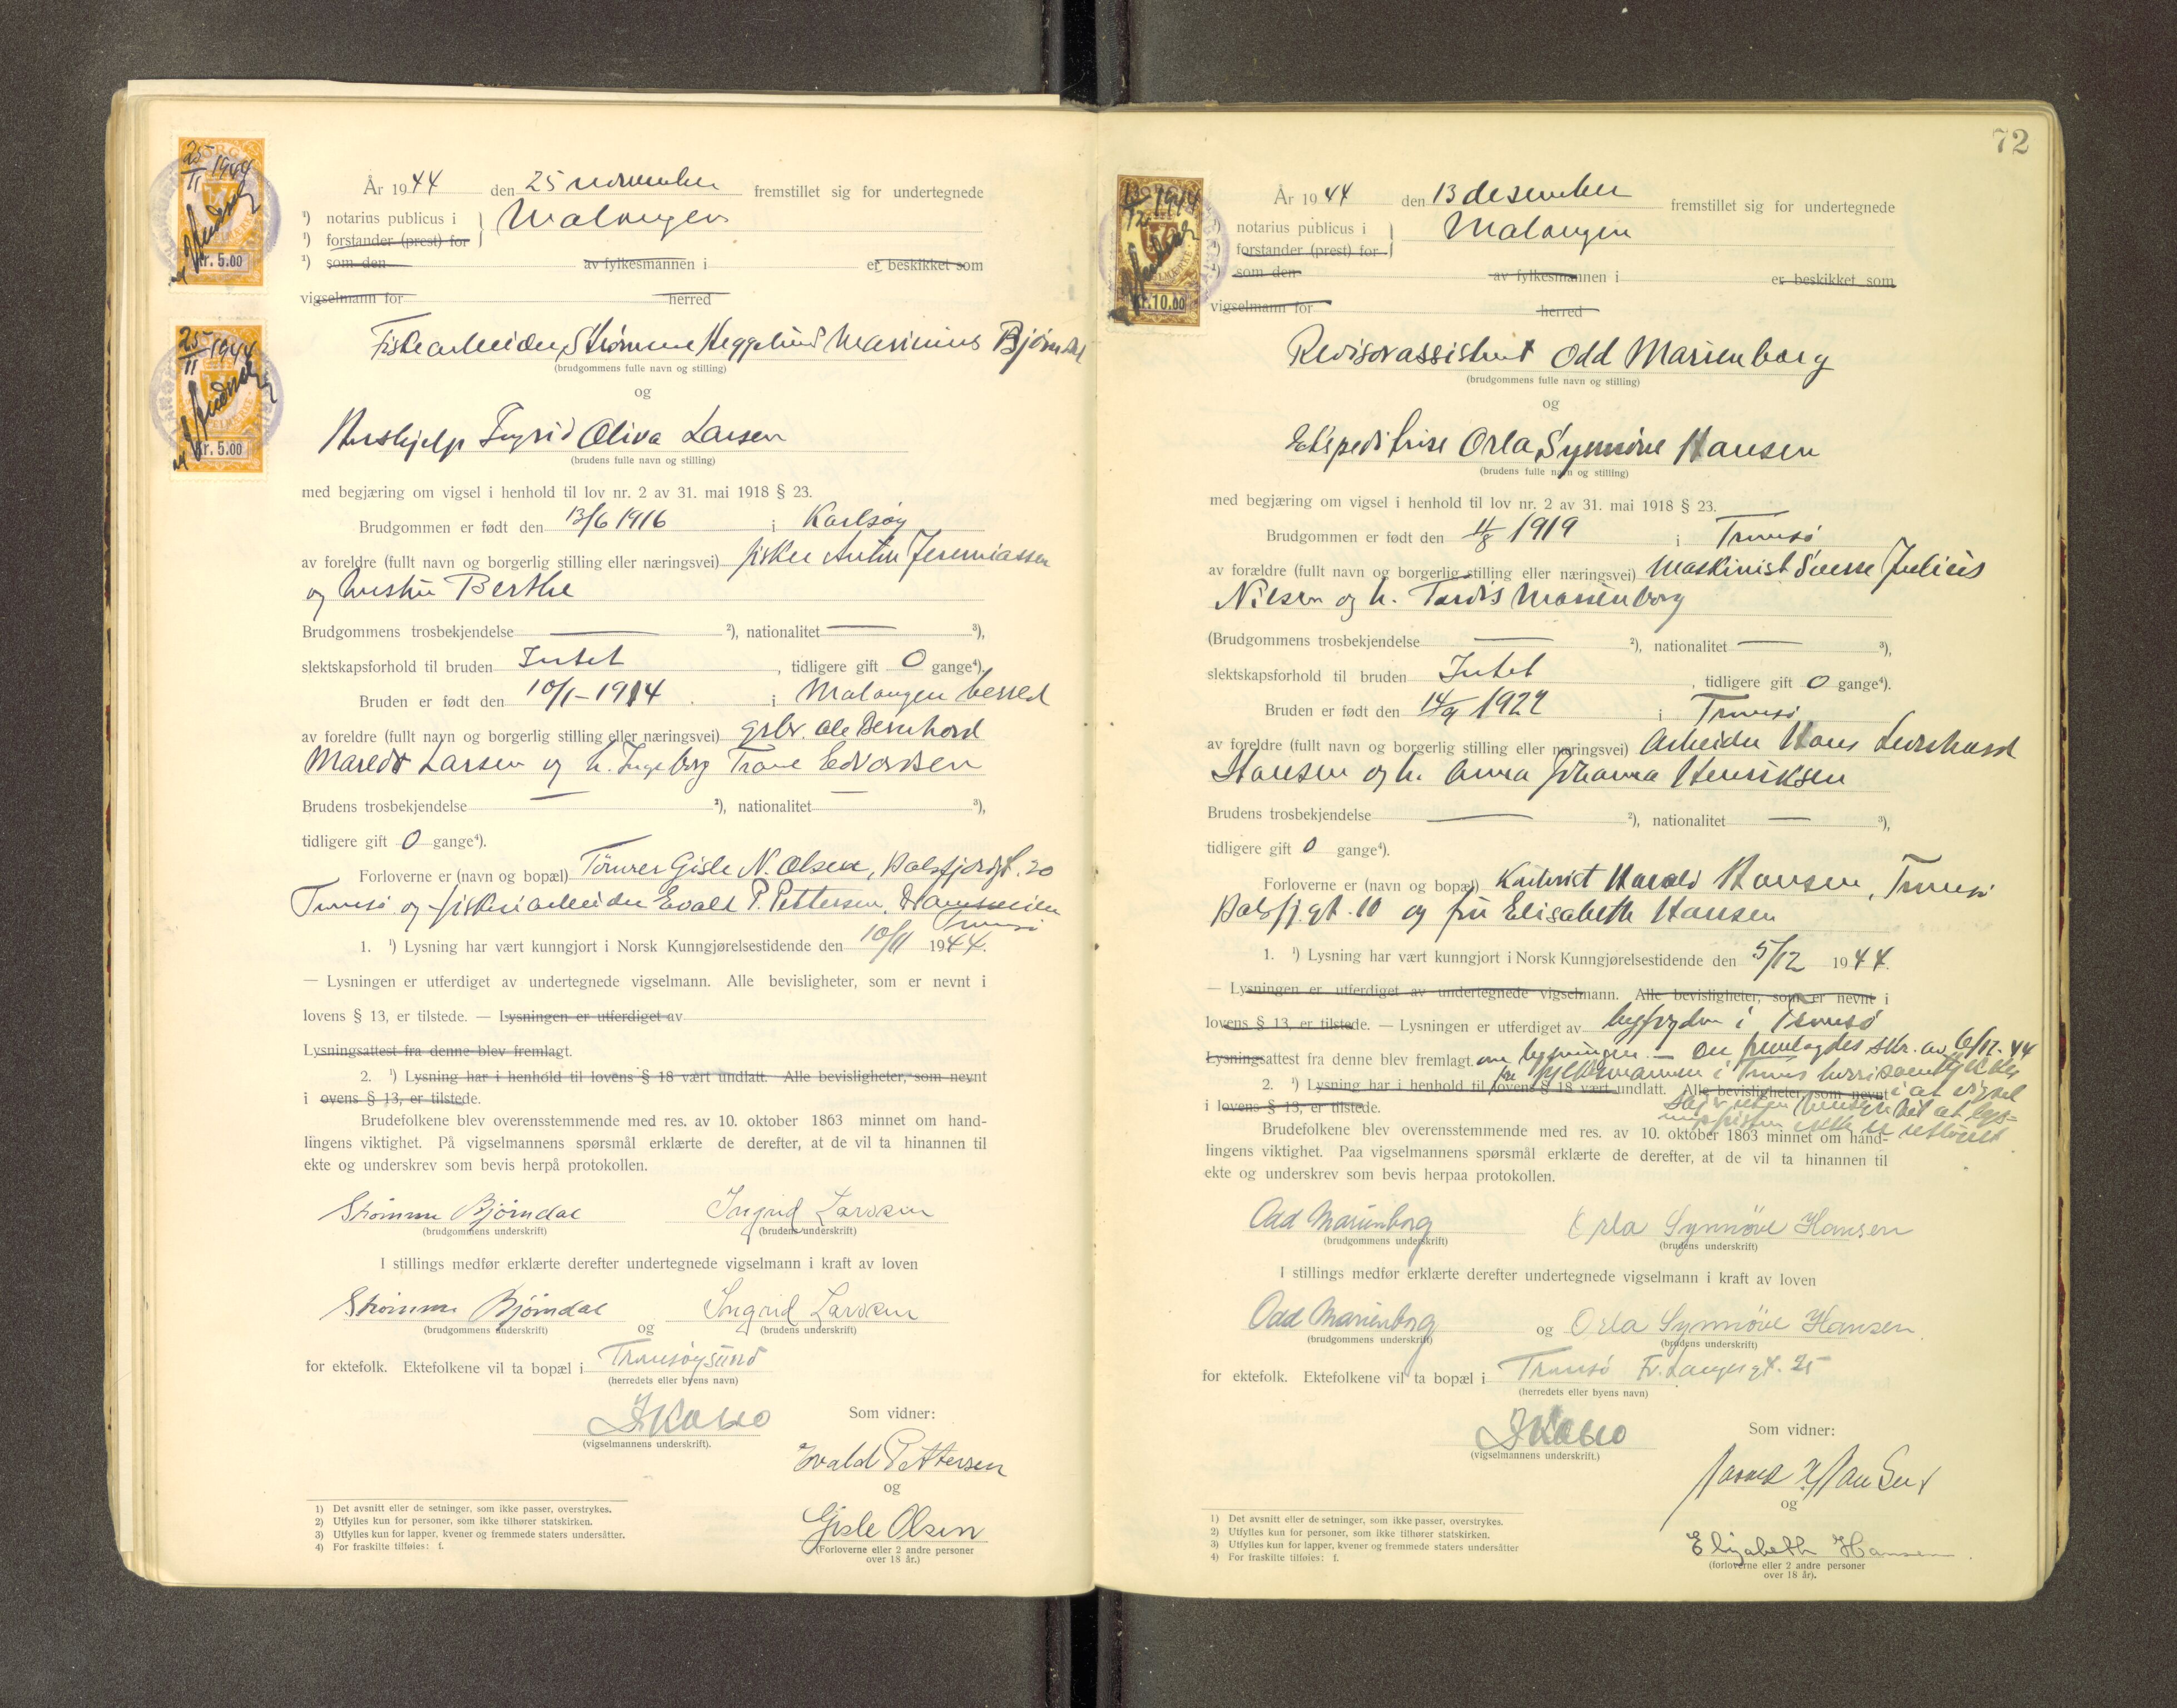 25/11 1944
Kr. 5.00
25/11 1944
Kr. 5.00
År 1944 den 25 november fremstillet sig for undertegnede
¹) notarius publicus i Malangen
¹) forstander (prest) for
¹) som den av fylkesmannen i er beskikket som
vigselmann for herred
Fiskearbeider Strømme Heggelund Marinius Bjørndal
(brudgommens fulle navn og stilling)
og
Hushjelp Ingrid Oliva Larsen
(brudens fulle navn og stilling)
med begjæring om vigsel i henhold til lov nr. 2 av 31. mai 1918 § 23.
Brudgommen er født den 13/6 1916 i Karlsøy
av foreldre (fullt navn og borgerlig stilling eller næringsvei) fisker Anton Jeremiassen
og hustru Berthe
Brudgommens trosbekjendelse ²), nationalitet ³),
slektskapsforhold til bruden Intet, tidligere gift 0 gange⁴).
Bruden er født den 10/1-1914 i Malangen herred
av foreldre (fullt navn og borgerlig stilling eller næringsvei) gsbr. Ole Bernhard
Larsen og h. Ingeborg Edvardsen
Brudens trosbekjendelse ²), nationalitet ³),
tidligere gift 0 gange⁴).
Forloverne er (navn og bopæl) Tømrer Gisle N. Olsen, Balsfjordgt. 20
Tromsø og fiskeriarbeider Evald P. Pettersen,
Tromsø
1. ¹) Lysning har vært kunngjort i Norsk Kunngjørelsestidende den 10/11 1944.
— Lysningen er utferdiget av undertegnede vigselmann. Alle bevisligheter, som er nevnt i
lovens § 13, er tilstede. — Lysningen er utferdiget av
Lysningsattest fra denne blev fremlagt.
2. ¹) Lysning har i henhold til lovens § 18 vært undlatt. Alle bevisligheter, som nevnt
i ovens § 13, er tilstede.
Brudefolkene blev overensstemmende med res. av 10. oktober 1863 minnet om hand-
lingens viktighet. På vigselmannens spørsmål erklærte de derefter, at de vil ta hinannen til
ekte og underskrev som bevis herpå protokollen.
Strømme Bjørndal Ingrid Larsen
(brudgommens underskrift) (brudens underskrift)
I stillings medfør erklærte derefter undertegnede vigselmann i kraft av loven
Strømme Bjørndal og Ingrid Larsen
(brudgommens underskrift) (brudens underskrift)
for ektefolk. Ektefolkene vil ta bopæl i Tromsøysund
(herredets eller byens navn)
(vigselmannens underskrift).
Som vidner:
Evald Pettersen
og
Gisle Olsen
(Forloverne eller 2 andre personer
over 18 år.)
1) Det avsnitt eller de setninger, som ikke passer, overstrykes.
2) Utfylles kun for personer, som ikke tilhører statskirken.
3) Utfylles kun for lapper, kvener og fremmede staters undersåtter.
4) For fraskilte tilføies: f.
72
13/12 1944
Kr. 10.00
År 1944 den 13 desember fremstillet sig for undertegnede
¹) notarius publicus i Malangen
¹) forstander (prest) for
¹) som den av fylkesmannen i er beskikket som
vigselmann for herred
Revisorassistent Odd Marienborg
(brudgommens fulle navn og stilling)
og
Ekspeditrise Orla Synnöve Hansen
(brudens fulle navn og stilling)
med begjæring om vigsel i henhold til lov nr. 2 av 31. mai 1918 § 23.
Brudgommen er født den 11/8 1919 i Tromsø
av forældre (fullt navn og borgerlig stilling eller næringsvei) Maskinist Sverre Julius
Nilsen og h. Tordis Marienborg
(Brudgommens trosbekjendelse ²), nationalitet ³),
slektskapsforhold til bruden Intet, tidligere gift 0 gange⁴).
Bruden er født den 14/9 1922 i Tromsø
av foreldre (fullt navn og borgerlig stilling eller næringsvei) Arbeider Hans Leonhard
Hansen og h. Anna Johanna Henriksen
Brudens trosbekjendelse ²), nationalitet ³),
tidligere gift 0 gange⁴).
Forloverne er (navn og bopæl) Harald Hansen, Tromsø
Balsfj.gt. 10 og fru Elisabeth Hansen
1. ¹) Lysning har vært kunngjort i Norsk Kunngjørelsestidende den 5/12 1944.
— Lysningen er utferdiget av undertegnede vigselmann. Alle bevisligheter, som er nevnt i
lovens § 13, er tilstede. — Lysningen er utferdiget av byfogden i Tromsø
Lysningsattest fra denne blev fremlagt. om lysningen. — Der fremlagdes skr. av 6/12-44
fra fylkesmannen i Troms
2. ¹) Lysning har i henhold til lovens § 18 vært undlatt. Alle bevisligheter, som nevnt i at vigsel
i lovens § 13, er tilstede.
Brudefolkene blev overensstemmende med res. av 10. oktober 1863 minnet om hand-
lingens viktighet. Paa vigselmannens spørsmål erklærte de derefter, at de vil ta hinannen til
ekte og underskrev som bevis herpaa protokollen.
Odd Marienborg Orla Synnöve Hansen
(brudgommens underskrift) (brudens underskrift)
I stillings medfør erklærte derefter undertegnede vigselmann i kraft av loven
Odd Marienborg og Orla Synnöve Hansen
(brudgommens underskrift) (brudens underskrift)
for ektefolk. Ektefolkene vil ta bopæl i Tromsø Fr. Langesgt. 25
(herredets eller byens navn)
(vigselmannens underskrift.)
Som vidner:
og
Elisabeth Hansen
(forloverne eller 2 andre personer
over 18 år).
1) Det avsnitt eller de setninger, som ikke passer, overstrykes.
2) Utfylles kun for personer, som ikke tilhører statskirken.
3) Utfylles kun for lapper, kvener og fremmede staters undersåtter
4) For fraskilte tilføies: f.